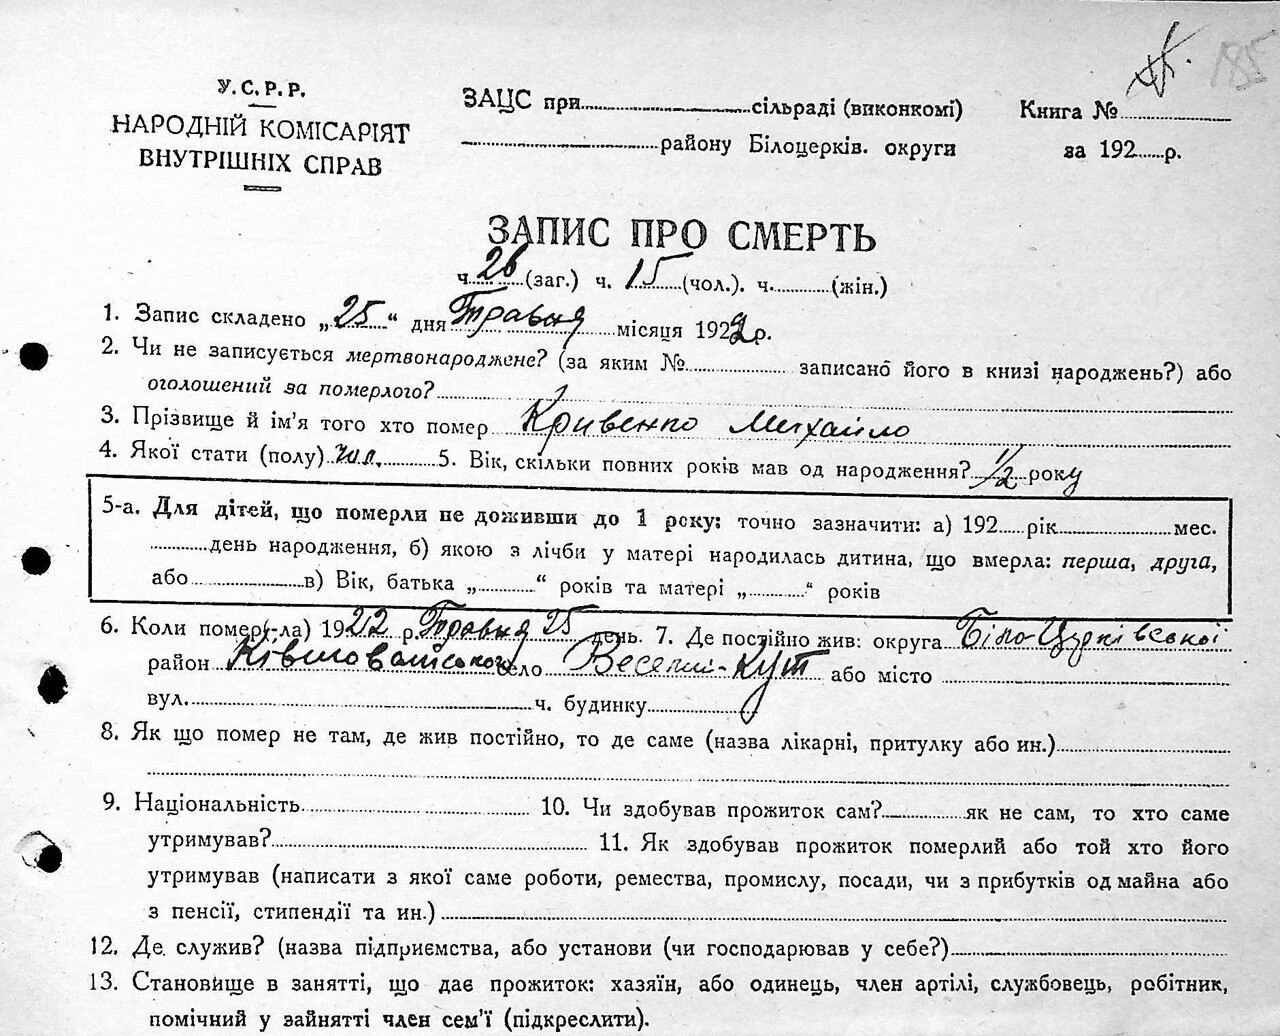 185
У.С.Р.Р.
НАРОДНІЙ КОМІСАРІЯТ
ВНУТРІШНІХ СПРАВ
ЗАЦС при сільраді (виконкомі)
району Білоцерків. округи
Книга №
за 192 р.
ЗАПИС ПРО СМЕРТЬ
ч. 26 (заг.) ч. 15 (чол.). ч. (жін.)
1. Запис складено „ 25 “ дня Травня місяця 1922 р.
2. Чи не записується мертвонароджене? (за яким № записано його в книзі народжень?) або
оголошений за померлого?
3. Прізвище й ім'я того хто помер Кривенко Михайло
4. Якої стати (полу) чол. 5. Вік, скільки повних років мав од народження? 1/2 року
5-а. Для дітей, що померли не доживши до 1 року: точно зазначити: а) 192 рік мес.
день народження, б) якою з лічби у матері народилась дитина, що вмерла: перша, друга,
або в) Вік, батька „ “ років та матері „ “ років
6. Коли помер(-ла) 1922 р. Травня 25 день. 7. Де постійно жив: округа Біло-Церківської
район село Веселий-Кут або місто
вул. ч. будинку
8. Як що помер не там, де жив постійно, то де саме (назва лікарні, притулку або ин.)
9. Національність 10. Чи здобував прожиток сам? як не сам, то хто саме
утримував? 11. Як здобував прожиток померлий або той хто його
утримував (написати з якої саме роботи, ремества, промислу, посади, чи з прибутків од майна або
з пенсії, стипендії та ин.)
12. Де служив? (назва підприємства, або установи (чи господарював у себе?)
13. Становище в занятті, що дає прожиток: хазяїн, або одинець, член артілі, службовець, робітник,
помічний у зайнятті член сем'ї (підкреслити).